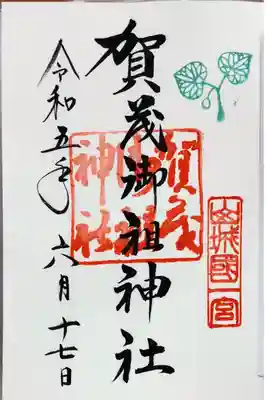 山城國一宮
賀茂御祖神社
賀茂御祖神社
令和五年六月十七日